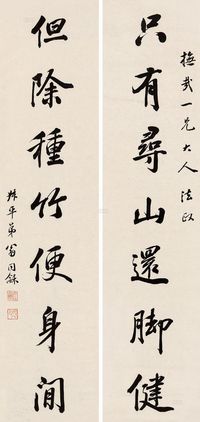 撫我一兄大人法政
只有尋山還腳健
但除種竹便身閒
叔平弟翁同龢